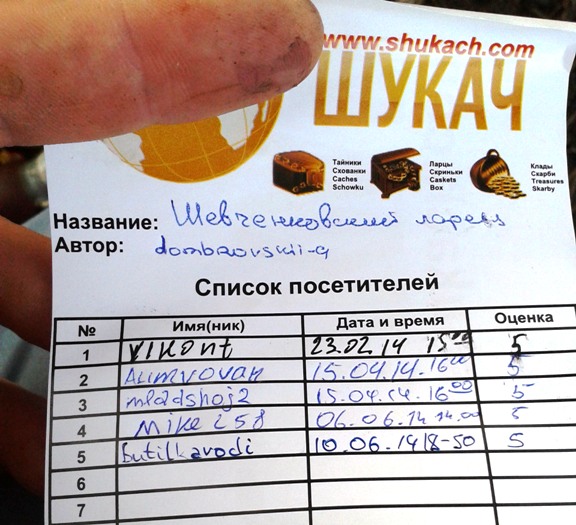 www.shukach.com
ШУКАЧ
Тайники
Схованки
Caches
Schowku
Ларцы
Скриньки
Caskets
Box
Клады
Скарби
Treasures
Skarby
Название: Шевченковский ларец
Автор: dombrovskii-a
Список посетителей
№ Имя(ник) Дата и время Оценка
1 VIKont 23.02.14 15⁰⁰ 5
2 Alimvovan 15.04.14. 16⁰⁰ 5
3 mladshoj2 15.04.14. 16⁰⁰ 5
4 Mike 258 06.06.14 14.00 5
5 butilkavodi 10.06.14 18-50 5
6
7